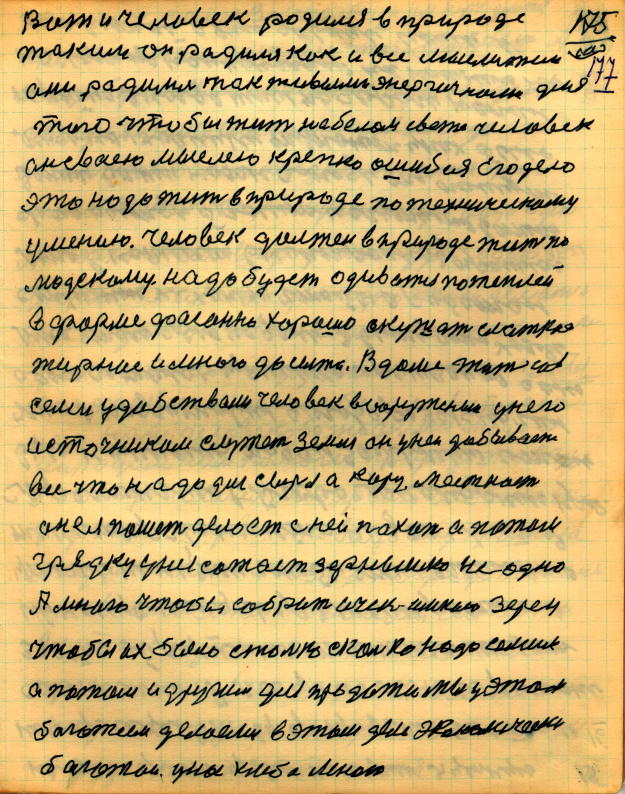 175
177
Вот и человек родился в природе
таким он радился как и все мыслители
они радились такживыми энергичными для
того чтобы жить на белом свете человек
он сваею мыслею крепко ошибся Его дело
это надо жить в природе по техническому
умению. Человек должен в природе жить по
людскому надо будет одиватся потеплей
в форме фасанно хорошо скушать слатко
жирное и много досыта. В доме жить со
семи удобствами человек вооружении у него
источником служет земля он у неи добывает
все что надо для сваего
он ея пашет делает с ней пахот а потом
грядку у неи сажает зернышко не одно
А много чтобы собрать зерен
чтобы их было столко сколко надо самим
а потом и другим для продажи мы у этом
богатеем делаем в этом деле экономически
богатой. у нас хлеба много